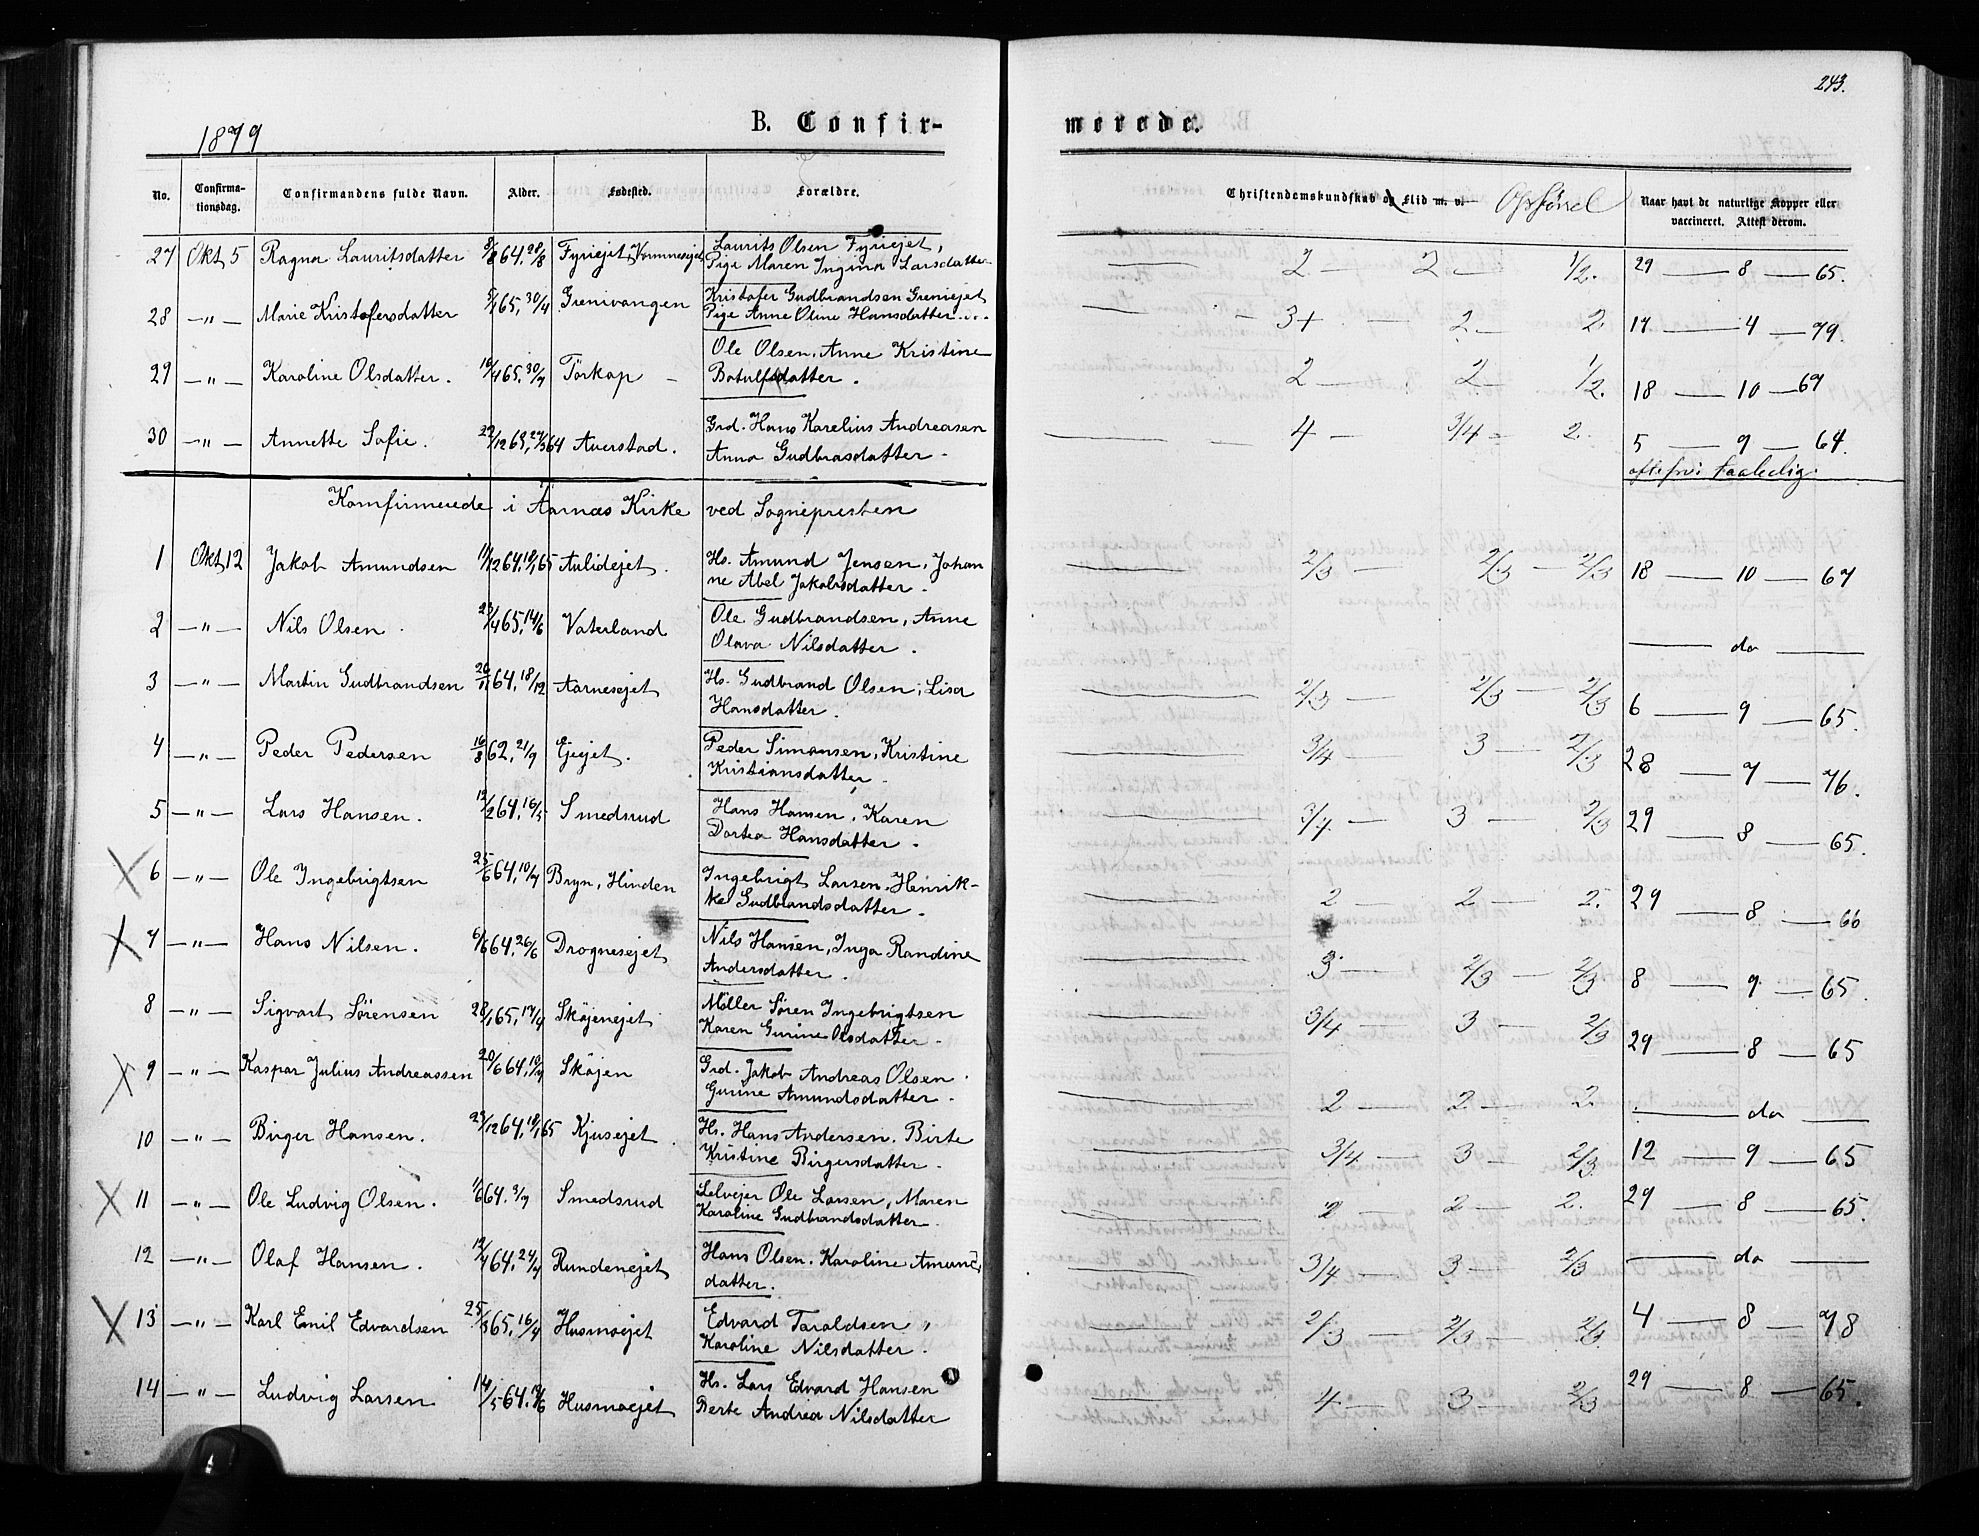 243.
1879
B. Confir-
merede.
No. Confirma-tionsdag. Confirmandens fulde Navn. Alder. Fødested. Forældre. Christendomskundskab og Flid m. v. Opførsel Naar havt de naturlige Kopper eller vaccineret. Attest derom.
27 Okt 5 Ragna Lauritsdatter 3/8 64, 28/8 Fyriejet, Vormnesejet Laurits Olsen Fyriejet,
Pige Maren Ingina Larsdatter 2 — 2 — 1/2. 29 — 8 — 65.
28 —"— Marie Kristofersdatter 5/1 65, 30/4 Grenivangen Kristofer Gudbrandsen Greniejet
Pige Anne Oline Hansdatter 3+ 2 — 2. 17 — 4 — 79.
29 —"— Karoline Olsdatter. 19/4 65, 30/7 Törkop Ole Olsen, Anne Kristine
Botulfsdatter. 2 — 2 — 1/2. 18 — 10 — 67
30 —"— Annette Sofie. 22/12 63, 27/3 64 Auerstad. Grd. Hans Karelius Andreasen
Anna Gudbrasdatter 4 — 3/4 — 2. 5 — 9 — 64.
Komfirmerede i Aarnæs Kirke ved Sognepresten
1 Okt 12 Jakob Amundsen 11/12 64, 19/1 65 Aulidejet. Hs. Amund Jensen, Johan
ne Abel Jakobsdatter. 2/3 — 2/3 — 2/3 18 — 10 — 67
2 —"— Nils Olsen 23/4 65, 14/6 Vaterland Ole Gudbrandsen, Anne
Olava Nilsdatter. — do —
3 —"— Martin Gudbrandsen 20/11 64, 18/12 Aarnesejet Hs. Gudbrand Olsen, Lisa
Hansdatter. 2/3 — 2/3 — 2/3 6 — 9 — 65.
4 —"— Peder Pedersen 16/8 62, 21/9 Ejejet. Peder Simonsen, Kristine
Kristiansdatter 3/4 3 — 2/3 28 — 7 — 76.
5 —"— Lars Hansen. 12/2 64, 16/5 Smedsrud Hans Hansen, Karen
Dortea Hansdatter. 3/4 — 3 — 2/3 29 — 8 — 65.
6 —"— Ole Ingebrigtsen 25/6 64, 10/7 Bryn, Hinden Ingebrigt Larsen, Henrik-
ke Gudbrandsdatter. 2 — 2 — 2. 29 — 8 — 66
7 —"— Hans Nilsen. 6/6 64, 26/6 Drognesejet Nils Hansen, Inga Randine
Andersdatter. 3 — 2/3 — 2/3 8 — 9 — 65.
8 —"— Sigvart Sörensen 28/1 65, 17/4 Sköjenejet Möller Sören Ingebrigtsen
Karen Gurine Olsdatter. 3/4 — 3 — 2/3 29 — 8 — 65
9 —"— Kaspar Julius Andreassen 20/6 64, 10/7 Sköjen Grd. Jakob Andreas Olsen
Gurine Amundsdatter. 2 — 2 — 2. — do —
10 —"— Birger Hansen. 23/12 64, 19/1 65 Kjusejet Hs. Hans Andersen, Birte
Kristine Birgersdatter. 3/4 — 3 — 2/3 12 — 9 — 65
11 —"— Ole Ludvig Olsen. 1/6 64, 3/7 Smedsrud Selvejer Ole Larsen, Maren
Karoline Gudbrandsdatter. 2 — 2 — 2. 29 — 8 — 65.
12 —"— Olaf Hansen. 12/4 64, 24/7 Rundenejet Hans Olsen, Karoline Amunds
datter. 3/4 — 3 — 2/3 — do —
13 —"— Karl Emil Edvardsen 25/3 65, 16/4 Husmoejet Edvard Taraldsen,
Karoline Nilsdatter. 2/3 — 2/3 — 2/3. 4 — 8 — 78
14 —"— Ludvig Larsen 14/5 64, 19/6 Husmoejet Hs. Lars Edvard Hansen
Berte Andrea Nilsdatter 4 — 3 — 2/3 29 — 8 — 65.